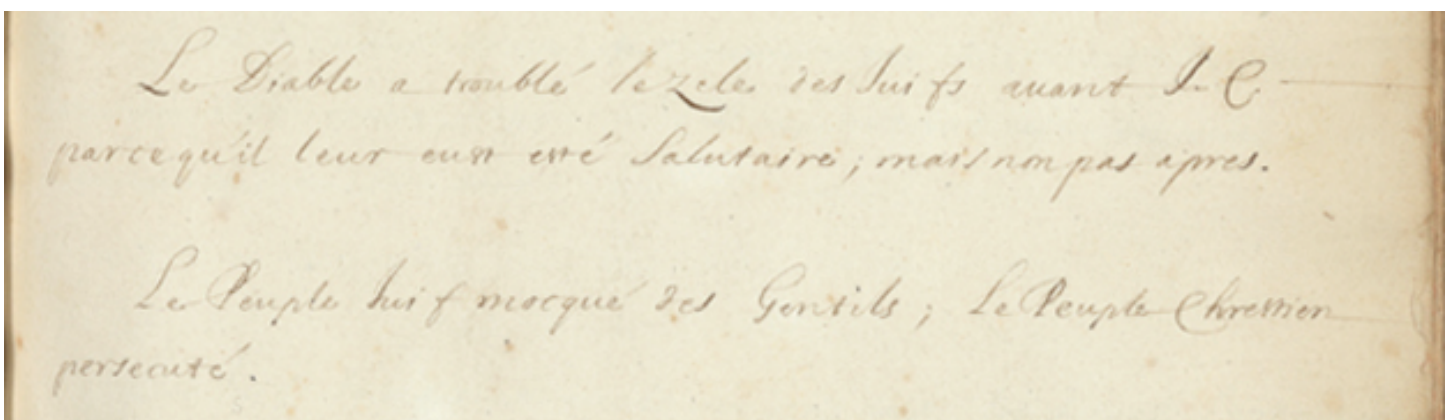 Le Diable a troublé le zele des Juifs auant J. C.
parce qu'il leur eust esté Salutaire ; mais non pas apres.
Le Peuple Juif mocqué des Gentils ; Le Peuple Chrestien
persecuté.